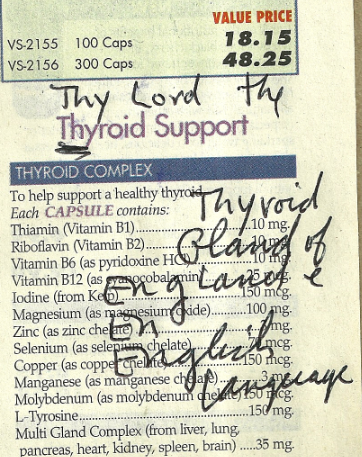 VALUE PRICE
VS-2155 100 Caps 18.15
VS-2156 300 Caps 48.25
Thy Lord the
Thyroid Support
THYROID COMPLEX
To help support a healthy thyroid
Each CAPSULE contains: Thyroid
Thiamin (Vitamin B1)..................10 mg.
Riboflavin (Vitamin B2) 10 mg.
Gland of
Vitamin B6 (as pyridoxine HCl) 10 mg.
Vitamin B12 (as cyanocobalamin) mcg.
England e
Iodine (from Kelp) 150 mcg.
Magnesium (as magnesium oxide)......100 mg.
En
Zinc (as zinc chelate) mg.
English
Selenium (as selenium chelate) mcg.
Copper (as copper chelate) 150 mcg.
Manganese (as manganese chelate) 3 mg.
language
Molybdenum (as molybdenum chelate) 150 mcg.
L-Tyrosine..................150 mg.
Multi Gland Complex (from liver, lung,
pancreas, heart, kidney, spleen, brain) .....35 mg.